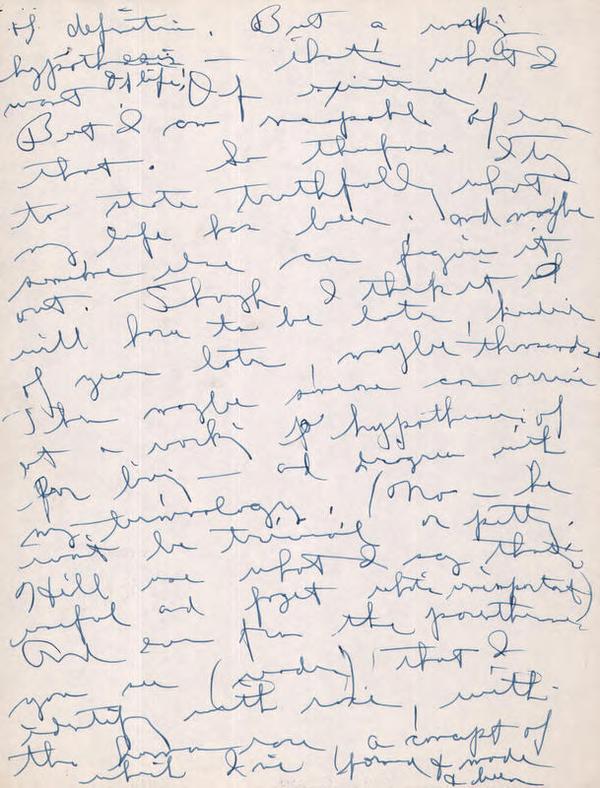 of definition. But a working
hypothesis — that's what I
want of life! Of existence!
But I am incapable of even
that. So therefore I try
to state truthfully what
my life has been. And maybe
someone else can figure it
out. Though I think it
will have to be later, hundreds
of years later, maybe thousands.
Then maybe someone can arrive
at a working hypothesis of
for living — and disagree with
my terminology. (No — he
won't be trivial or petty.
He'll use what I say that's
useful and forget what's unimportant)
And even from the parentheses
you see (reader), that I
identify with race, with
the human race, a concept of
which I've found & made
& been